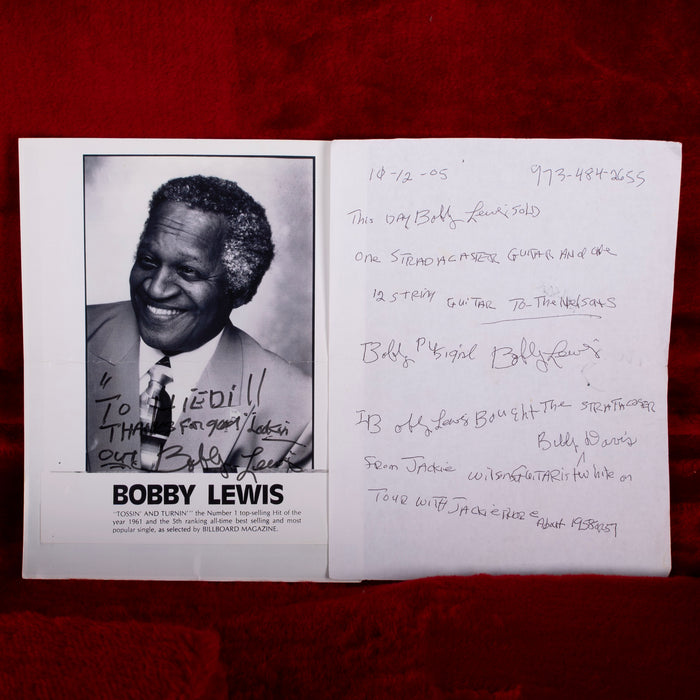 " TO HEIDI"
THANKS For good "Lookin
out Bobby Lewis
BOBBY LEWIS
"TOSSIN' AND TURNIN'" the Number 1 top-selling Hit of the
year 1961 and the 5th ranking all-time best selling and most
popular single, as selected by BILLBOARD MAGAZINE.
10-12-05 973-484-2655
This DAY Bobby Lewis SOLD
One STRADACASTER GUITAR And one
12 string GUITAR TO-The NELSONS
Bobby Bobby Lewis
I Bobby Lewis Bought The STRATACASER
Billy Davis
From JACKIE wilson GUITARist while on
TOUR WITH JACKIE
About 1958 or 57